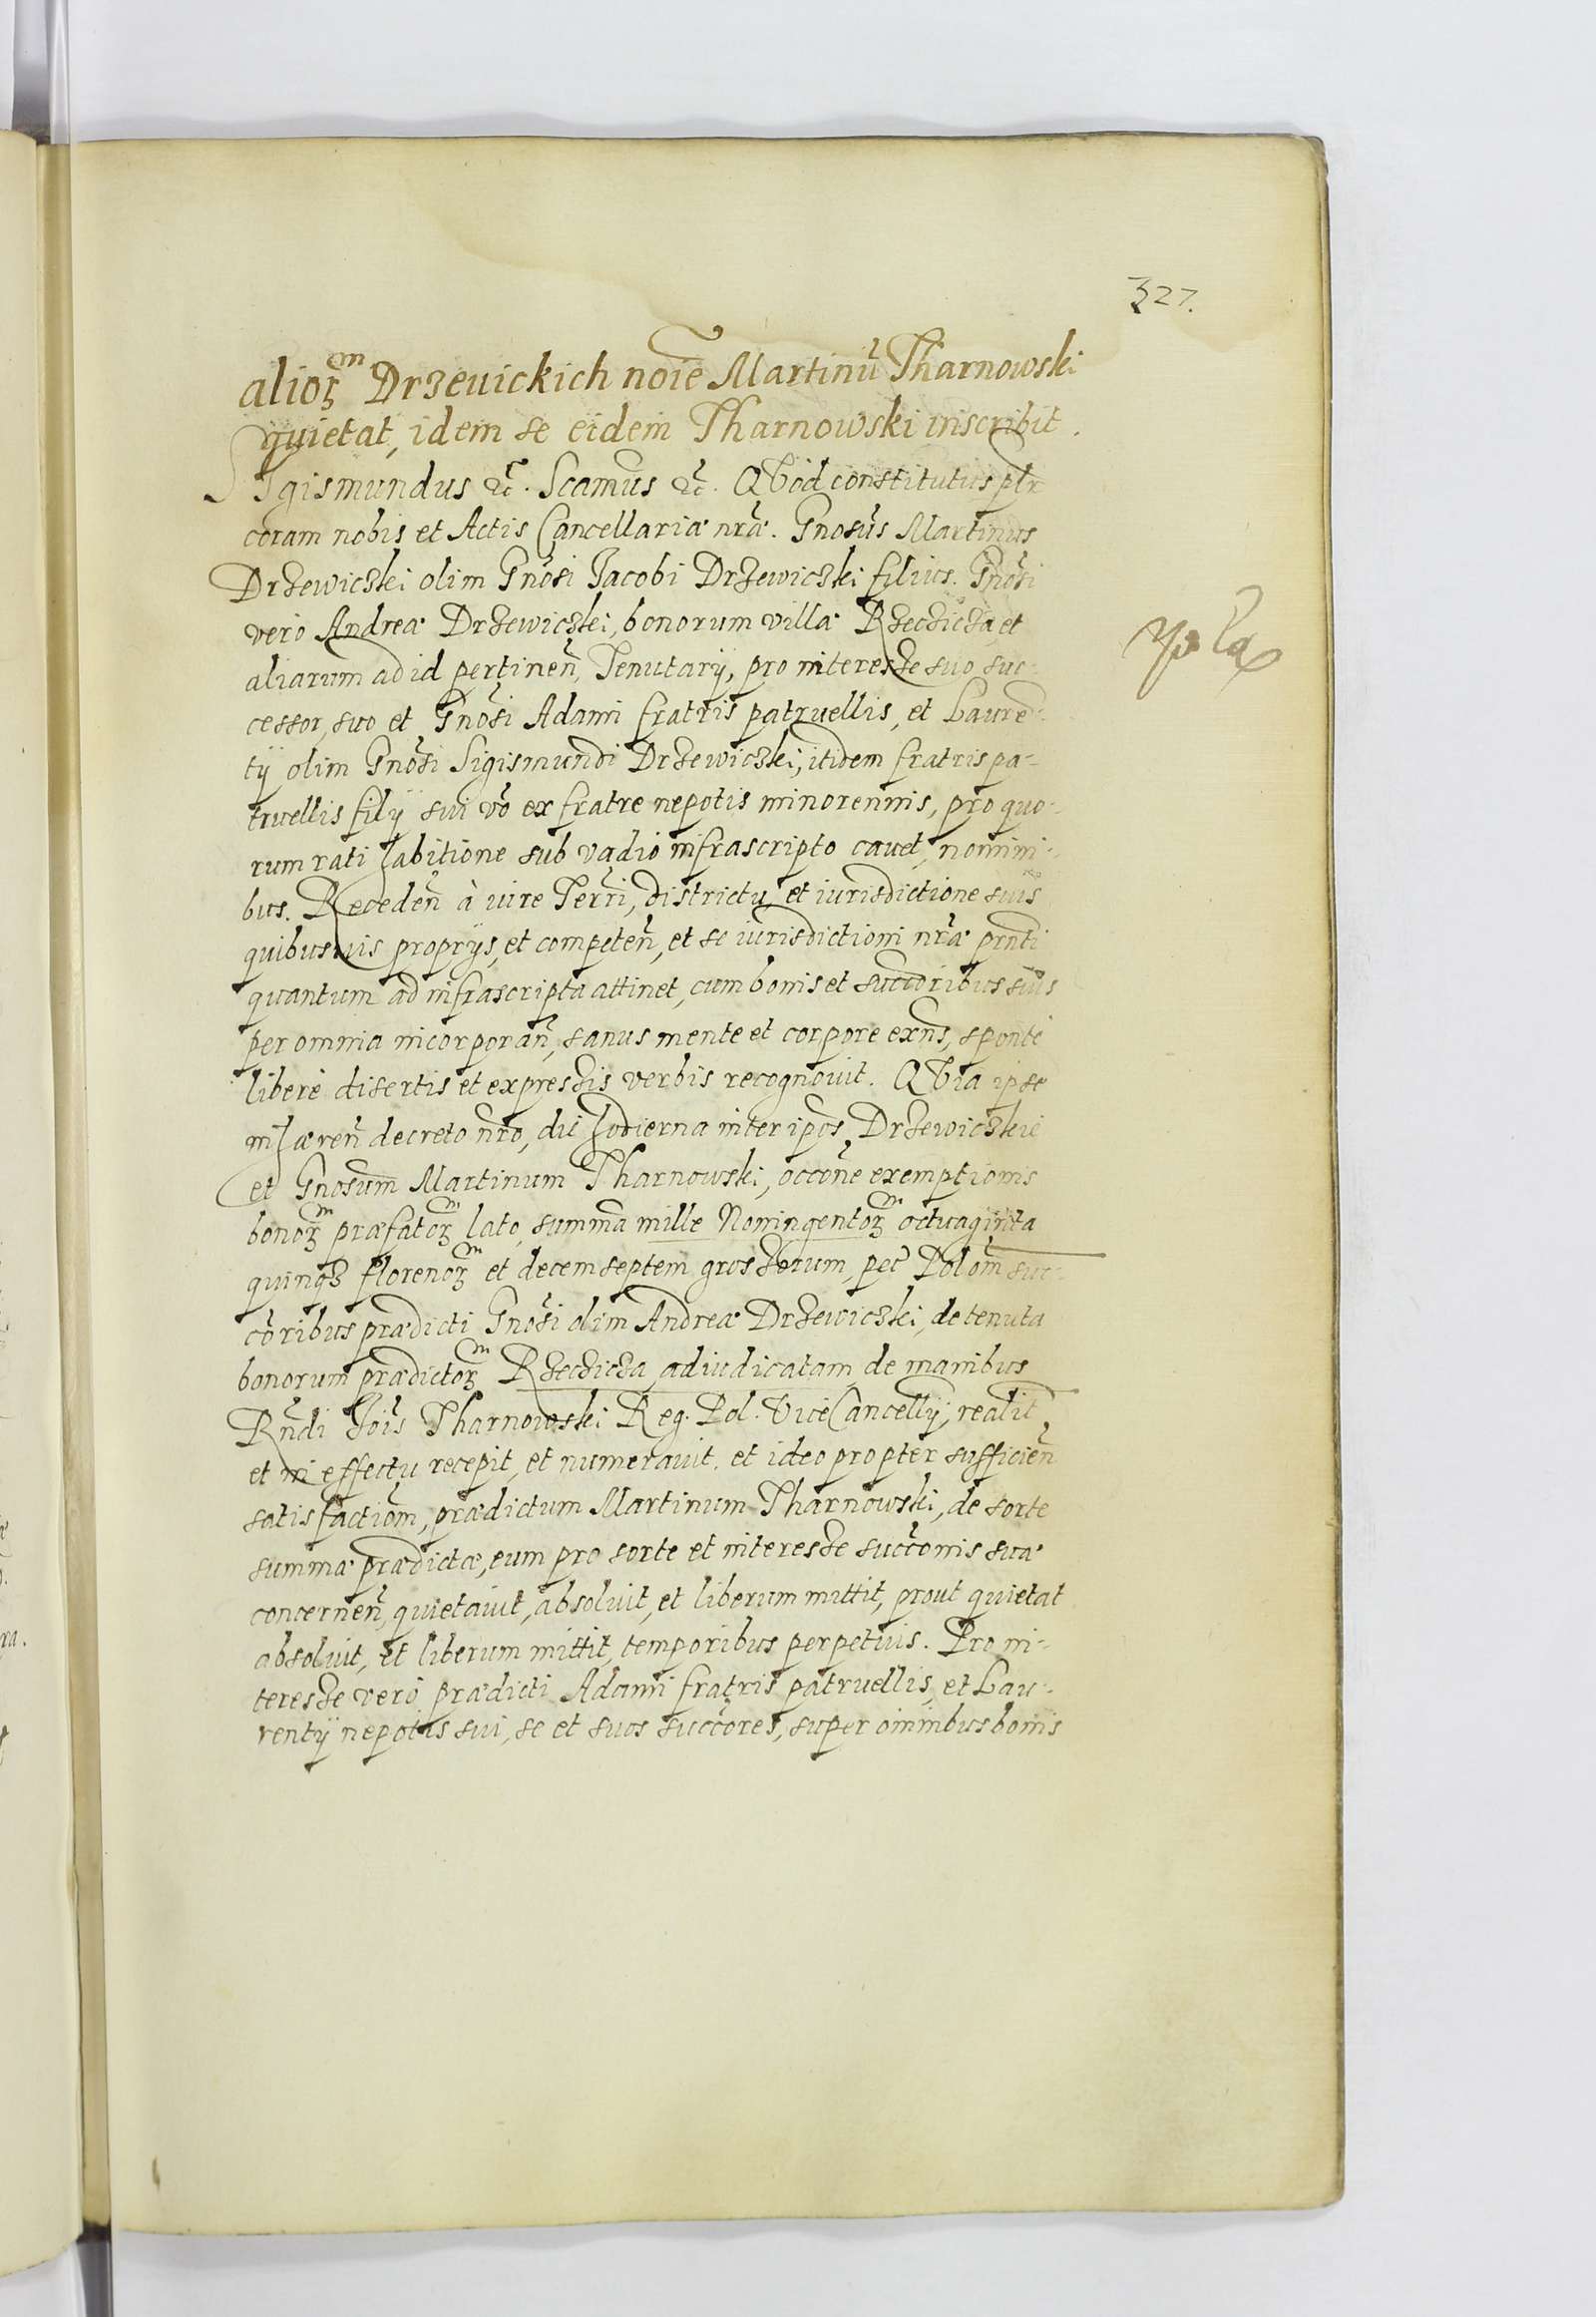 327.
alioꝝ Drzevickich noīe Martinū Tharnowski
quietat, idem se eidem Tharnowski inscribit.
SIgismundus ꝛc̄. Scamus ꝛc̄. QVod constitutus plr̄
coram nobis et Actis Cancellariæ nr̄æ. Gnosūs Martinus
Drzewiczki olim Gnōsi Jacobi Drzewiczki filius. Gnōsi
vero Andreæ Drzewiczki, bonorum villæ Rzeczicza, et
aliarum ad id pertineñ, Tenutarÿ, pro interesse suo suc-
cessor, suo et Gnōsi Adami fratris patruellis, et Lauren-
tÿ olim Gnōsi Sigismundi Drzewiczki, itidem fratris pa-
truellis filÿ sui vō ex fratre nepotis minorennis, pro quo-
rum rati habitione sub vadio infrascripto cavet, nomini-
bus. Recedeñ à iure Terrī, districtu, et iurisdictione suis
quibusvis proprÿs, et competeñ, et se iurisdictioni nr̄æ pn̄ti
quantum ad infrascripta attinet, cum bonis et succōribus suis
per omnia incorporañ, sanus mente et corpore exn̄s, sponte
liberè disertis et expressis verbis recognovit. QVia ipse
inhæreñ decreto nr̄o, die hodierna inter ip̄os Drzewiczkie
et Gnosum̄ Martinum Tharnowski, occōne exemptionis
bonoꝝ præfatoꝝ lato, summa mille Noningentoꝝ octuaginta
quinqꝫ florenoꝝ et decem septem grossorum, per̄ Polom̄ suc-
cōribus prædicti Gnōsi olim Andreæ Drzewiczki, de tenuta
bonorum prædictoꝝ Rzeczicza adiudicatam, de manibus
Rñdi Joīs Tharnowski Reg. Pol. ViceCancellÿ, realit̄
et in effectu recepit, et numeravit, et ideo propter sufficieñ
satisfactiom̄, prædictum Martinum Tharnowski, de sorte
summæ prædictæ, eum pro sorte et interesse succōnis suæ
concerneñ, quietavit, absolvit, et liberum mittit, prout quietat
absolvit, et liberum mittit, temporibus perpetuis. Pro in-
teresse verò prædicti Adami fratris patruellis, et Lau-
rentÿ nepotis sui, se et suos succōres, super omnibus bonis